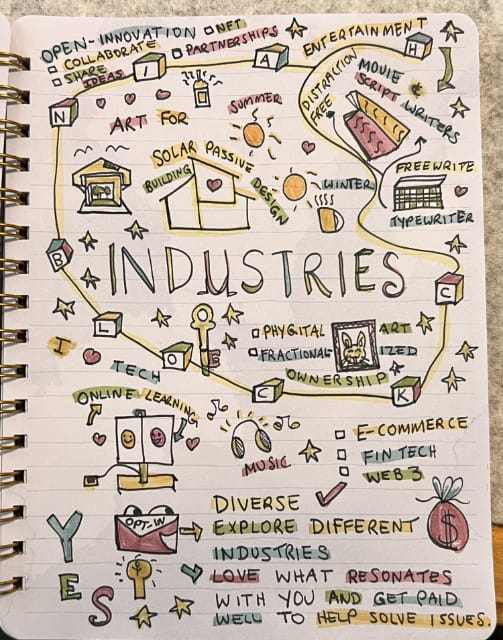 OPEN-INNOVATION
COLLABORATE
SHARE
IDEAS
NFT
PARTNERSHIPS
ENTERTAINMENT
H
A
I
N
B
L
O
C
K
C
DISTRACTION
FREE
MOVIE &
SCRIPT WRITERS
ART FOR
SUMMER
SOLAR PASSIVE
BUILDING
DESIGN
WINTER
FREEWRITE
TYPEWRITER
INDUSTRIES
I
TECH
ONLINE LEARNING
PHYGITAL ART
FRACTIONALIZED
OWNERSHIP
MUSIC
E-COMMERCE
FINTECH
WEB3
YES
OPT-IN
DIVERSE
EXPLORE DIFFERENT
INDUSTRIES
LOVE WHAT RESONATES
WITH YOU AND GET PAID
WELL TO HELP SOLVE ISSUES.
$